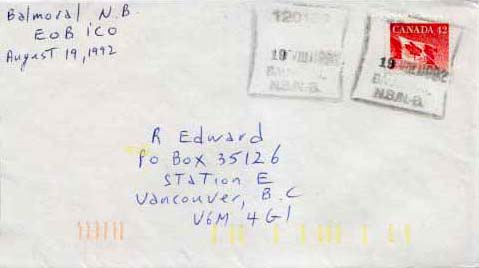 Balmoral N.B.
E0B 1C0
August 19, 1992
CANADA 42
19 VIII 1992
N.B./N-B.
19 VIII 1992
N.B./N-B.
R Edward
PO BOX 35126
STATION E
Vancouver, B.C
V6M 4G1